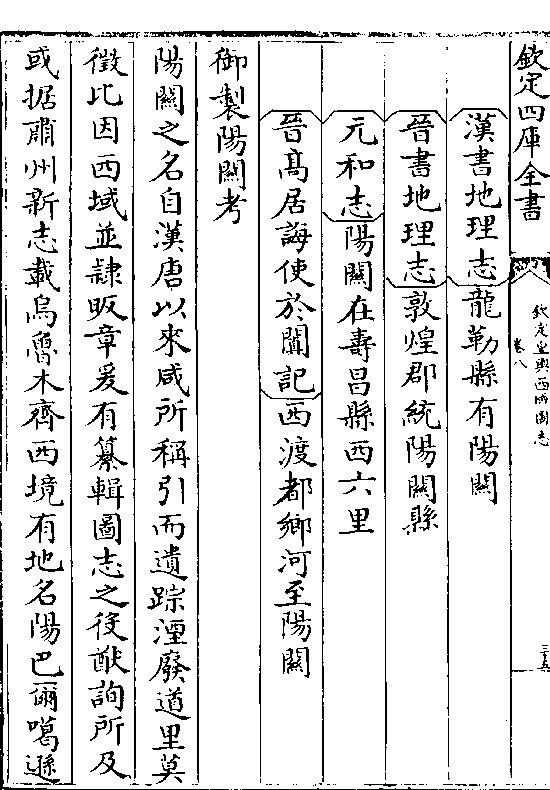 欽定四庫全書
欽定皇輿西域圖志
卷八
三十五
漢書地理志龍勒縣有陽關
晉書地理志敦煌郡統陽關縣
元和志陽關在壽昌縣西六里
晉高居誨使於闐記西渡都鄉河至陽關
御製陽關考
陽關之名自漢唐以來咸所稱引而遺踪湮廢道里莫
徵比因西域並隷畈章爰有纂輯圖志之役猷詢所及
或据肅州新志載烏魯木齊西境有地名陽巴爾噶遜